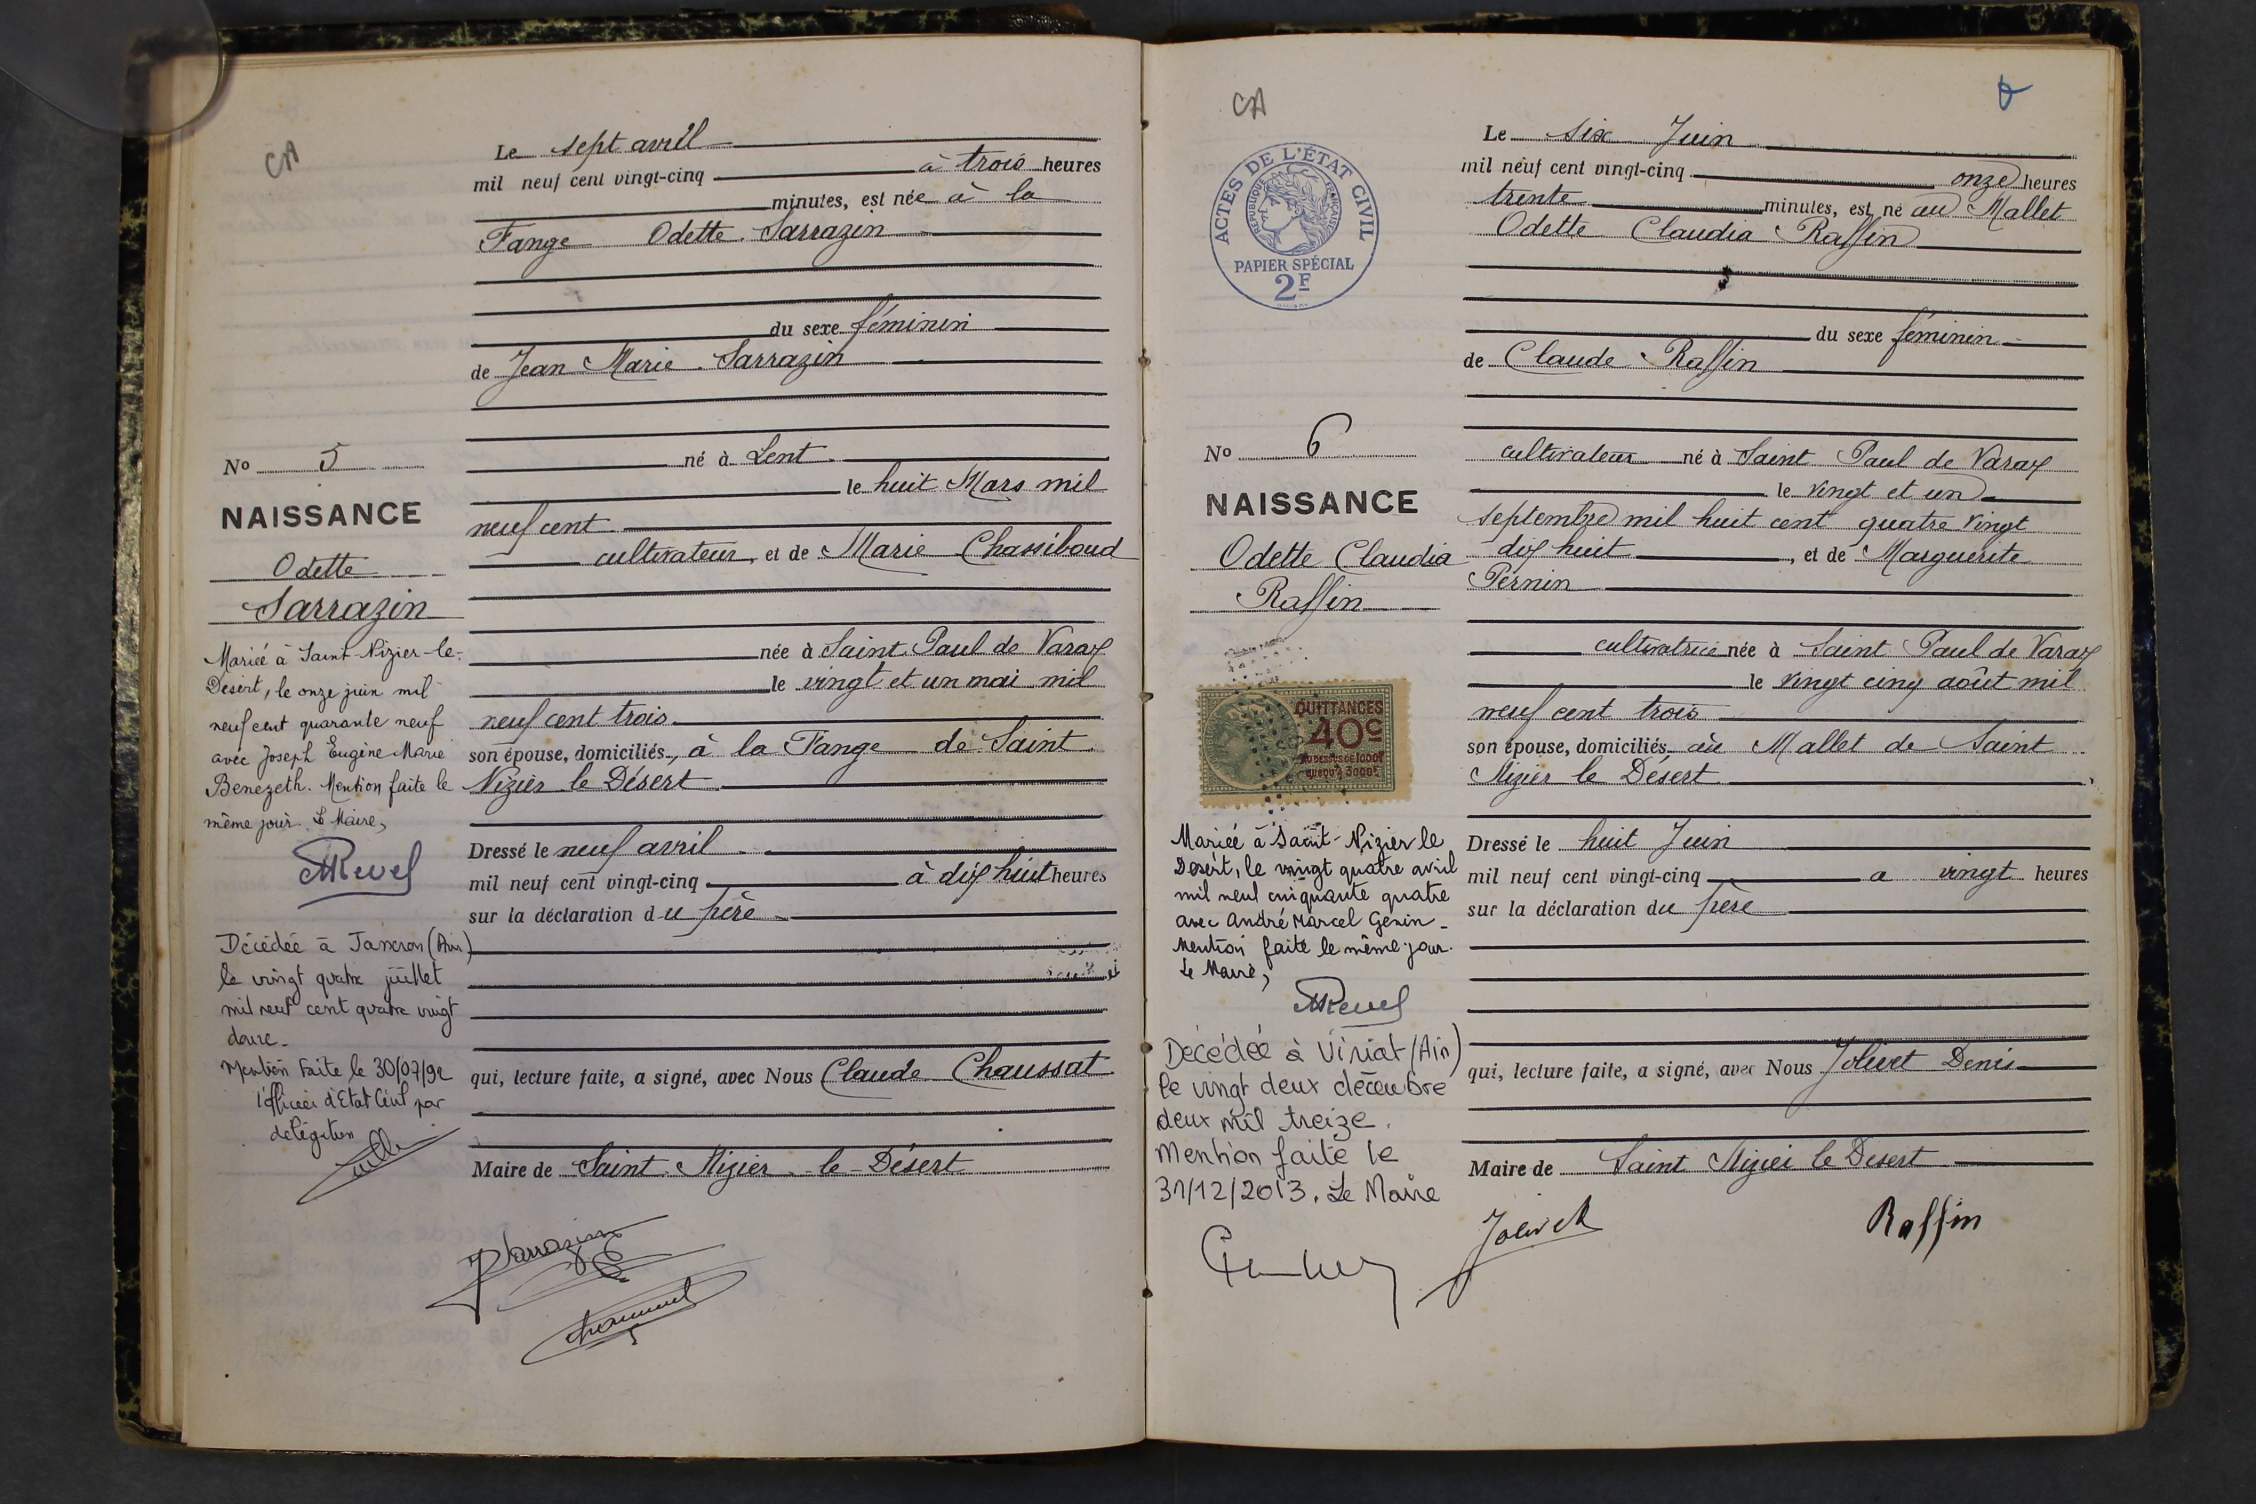 CA
Le sept avril
mil neuf cent vingt-cinq à trois heures
minutes, est née à la
Fange Odette Sarrazin
du sexe féminin
de Jean Marie Sarrazin
né à Lent
le huit Mars mil
neuf cent
cultivateur, et de Marie Chassiboud
née à Saint Paul de Varax
le vingt et un mai mil
neuf cent trois
son épouse, domiciliés, à la Fange de Saint
Nizier le Désert
Dressé le neuf avril
mil neuf cent vingt-cinq à dix huit heures
sur la déclaration du père
qui, lecture faite, a signé, avec Nous Claude Chaussat
Maire de Saint Nizier le Désert
No 5
NAISSANCE
Odette
Sarrazin
Mariée à Saint-Nizier-le-
Désert, le onze juin mil
neuf cent quarante neuf
avec Joseph Eugène Marie
Benezeth. Mention faite le
même jour. Le Maire,
Revel
Décédée à (Ain)
le vingt quatre juillet
mil neuf cent quatre vingt
douze.
Mention faite le 30/07/92
l'officier d'Etat Civil par
délégation
Sarrazin
CA
ACTES DE L'ÉTAT CIVIL
RÉPUBLIQUE FRANÇAISE
PAPIER SPÉCIAL
2F
Le six Juin
mil neuf cent vingt-cinq onze heures
trente minutes, est né au Mallet
Odette Claudia Raffin
du sexe féminin
de Claude Raffin
cultivateur né à Saint Paul de Varax
le vingt et un
septembre mil huit cent quatre vingt
dix huit, et de Marguerite
Pernin
cultivatrice née à Saint Paul de Varax
le vingt cinq août mil
neuf cent trois
son épouse, domiciliés au Mallet de Saint
Nizier le Désert
Dressé le huit Juin
mil neuf cent vingt-cinq a vingt heures
sur la déclaration du père
qui, lecture faite, a signé, avec Nous Jolivet Denis
Maire de Saint Nizier le Désert
No 6
NAISSANCE
Odette Claudia
Raffin
QUITTANCES
40c
AU DESSUS DE 1000F
JUSQU'À 3000F
Mariée à Saint-Nizier le
Desert, le vingt quatre avril
mil neuf cinquante quatre
avec André Marcel Genin -
Mention faite le même jour.
Le Maire,
Revel
Décédée à Viriat (Ain)
le vingt deux décembre
deux mil treize.
Mention faite le
31/12/2013. Le Maire
Jolivet
Raffin